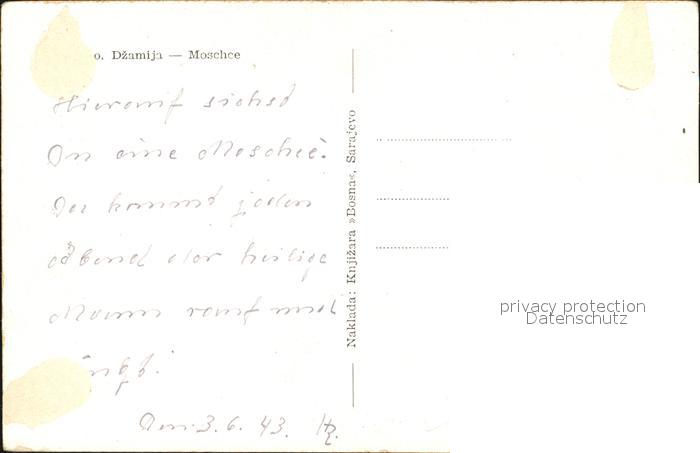 o. Džamija — Moschee
Hierauf siehst
Du eine Moschee.
Da kommt jeden
Abend der heilige
Mann rauf und
Den 3.6.43.
Naklada: Knjižara »Bosna«, Sarajevo
privacy protection
Datenschutz